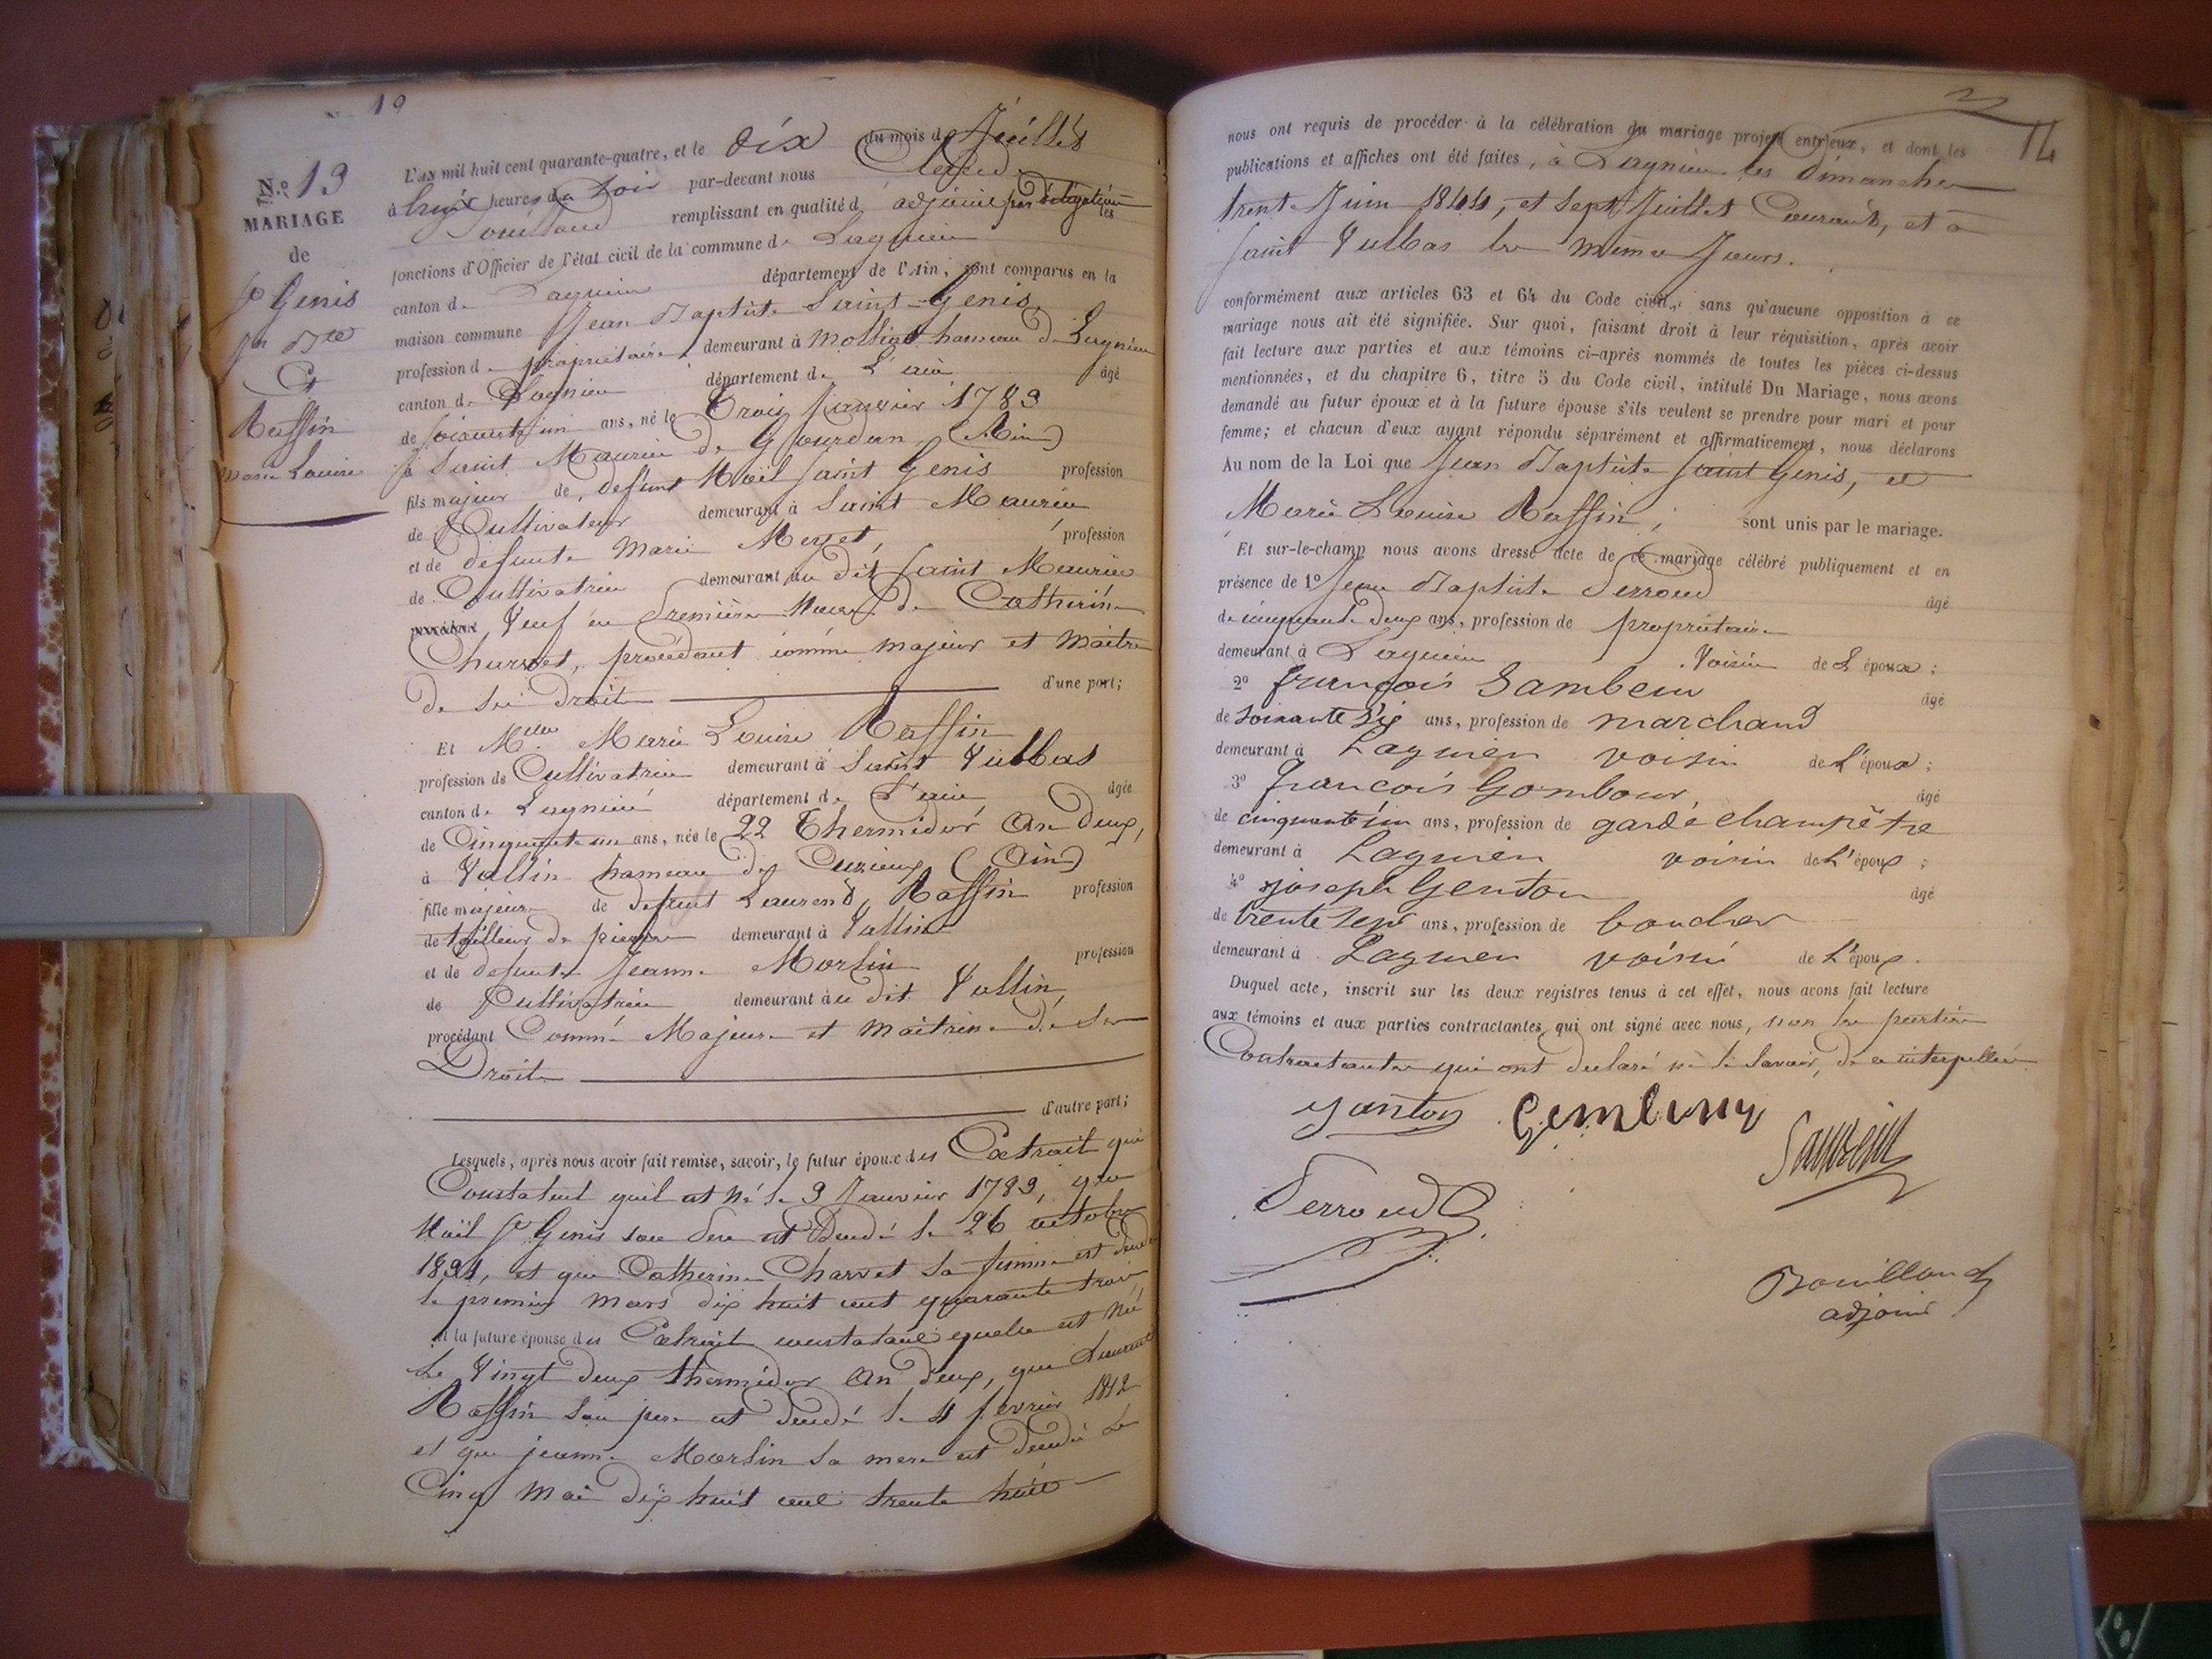 N° 19
N.º 19
MARIAGE
de
St Genis
Jn Bte
Et
Raffin
Marie Louise
L'an mil huit cent quarante-quatre, et le dix du mois de Juillet
à huit heures du soir par-devant nous Claude
Bouilloud remplissant en qualité d' adjoint par délégation les
fonctions d'Officier de l'état civil de la commune de Lagnieu
canton de Lagnieu département de l'Ain, sont comparus en la
maison commune Jean Baptiste Saint-Genis
profession de propriétaire demeurant à Mollard hameau de Lagnieu
canton de Lagnieu département de L'ain âgé
de soixante un ans, né le Trois Janvier 1783
à Saint Maurice de Gourdan (Ain)
fils majeur de defunt Noël Saint Genis profession
de Cultivateur demeurant à Saint Maurice
et de defunte Marie profession
de Cultivatrice demeurant au dit Saint Maurice
Veuf en Première Noces de Catherine
Charvet, procédant comme majeur et maitre
de ses droits d'une part;
Et Melle Marie Louise Raffin
profession de Cultivatrice demeurant à Saint Vulbas
canton de Lagnieu département de L'ain âgée
de Cinquante un ans, née le 22 Thermidor An deux,
à Vallin hameau de (Ain)
fille majeure de defunt Laurend Raffin profession
de tailleur de pierre demeurant à Vallin
et de defunte Jeanne Morlin profession
de Cultivatrice demeurant au dit Vallin,
procédant Comme Majeure et maitrisse de ses
Droits
d'autre part;
Lesquels, après nous avoir fait remise, savoir, le futur époux des Extrait qui
Constatent quil est né le 3 Janvier 1783, que
Noël St Genis son Pere est Décédé le 26 octobre
et que Catherine Charvet sa femme est décédé
le premier mars dix huit cent quarante trois
et la future épouse des Extrait constatant quelle est née
Le Vingt deux thermidor An deux, que Laurent
Raffin son pere est decedé le 4 février 1812
et que jeanne Morlin sa mere est decedée Le
Cinq Mai dix huit cent trente huit
14
nous ont requis de procéder à la célébration du mariage projeté entr'eux, et dont les
publications et affiches ont été faites, à Lagnieu les dimanches
trente Juin 1844, et sept Juillet Courant, et à
Saint Vulbas les mêmes Jours.
conformément aux articles 63 et 64 du Code civil, sans qu'aucune opposition à ce
mariage nous ait été signifiée. Sur quoi, faisant droit à leur réquisition, après avoir
fait lecture aux parties et aux témoins ci-après nommés de toutes les pièces ci-dessus
mentionnées, et du chapitre 6, titre 5 du Code civil, intitulé Du Mariage, nous avons
demandé au futur époux et à la future épouse s'ils veulent se prendre pour mari et pour
femme; et chacun d'eux ayant répondu séparément et affirmativement, nous déclarons
Au nom de la Loi que Jean Baptiste Saint Genis, et
Marie Louise Raffin, sont unis par le mariage.
Et sur-le-champ nous avons dressé acte de ce mariage célébré publiquement et en
présence de 1º Jean Baptiste Serroud âgé
de cinquante deux ans, profession de propriétaire
demeurant à Lagnieu voisin de L'époux;
2º françois Sambein âgé
de soixante six ans, profession de marchand
demeurant à Lagnieu voisin de l'époux;
3º francois Gombour, âgé
de cinquante un ans, profession de garde champêtre
demeurant à Lagnieu voisin de L'époux;
4º joseph Genton âgé
de trente sept ans, profession de boucher
demeurant à Lagnieu voisin de L'époux.
Duquel acte, inscrit sur les deux registres tenus à cet effet, nous avons fait lecture
aux témoins et aux parties contractantes qui ont signé avec nous, non les parties
Contractantes qui ont declaré ne le savoir, de ce interpellés
Serroud
Bouilloud
adjoint